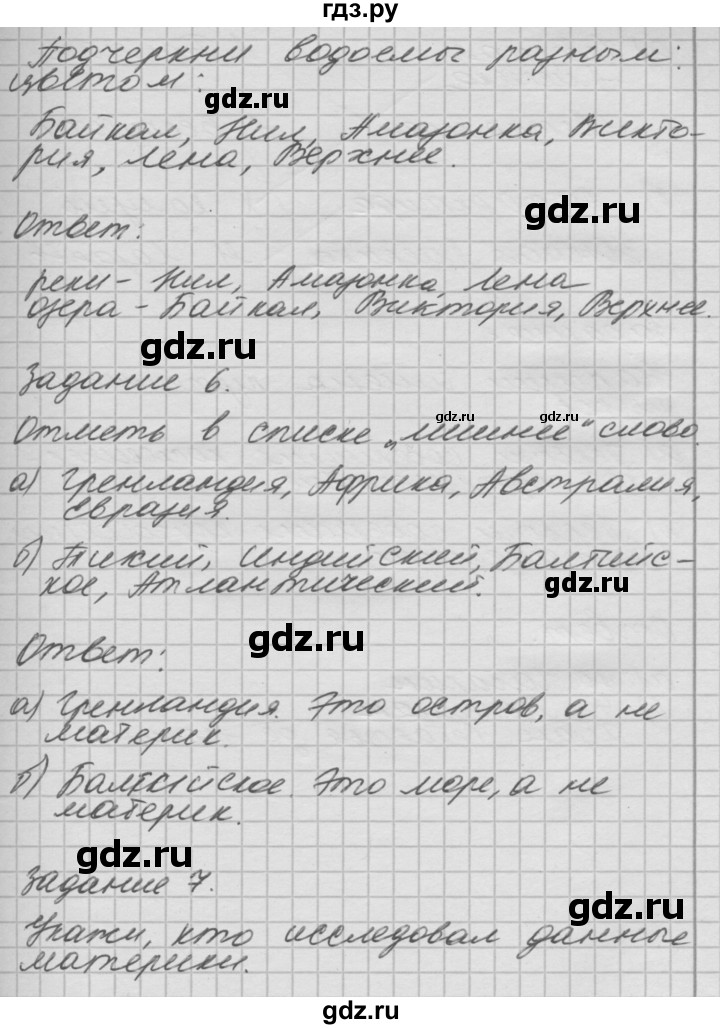 гдз.ру
Подчеркни водоемы разным
цветом:
gdz.ru
Байкал, Нил, Амазонка, Викто-
рия, Лена, Верхнее.
gdz.ru
Ответ:
реки - Нил, Амазонка, Лена
озера - Байкал, Виктория, Верхнее.
gdz.ru
Задание 6.
gdz.ru gdz.ru
Отметь в списке „лишнее“ слово.
а) Гренландия, Африка, Австралия,
Евразия.
б) Тихий, Индийский, Балтийс-
кое, Атлантический.
gdz.ru
gdz.ru
Ответ:
а) Гренландия. Это остров, а не
материк.
б) Балтийское. Это море, а не
материк.
gdz.ru
Задание 7.
gdz.ru
Укажи, кто исследовал данные
материки.
gdz.ru